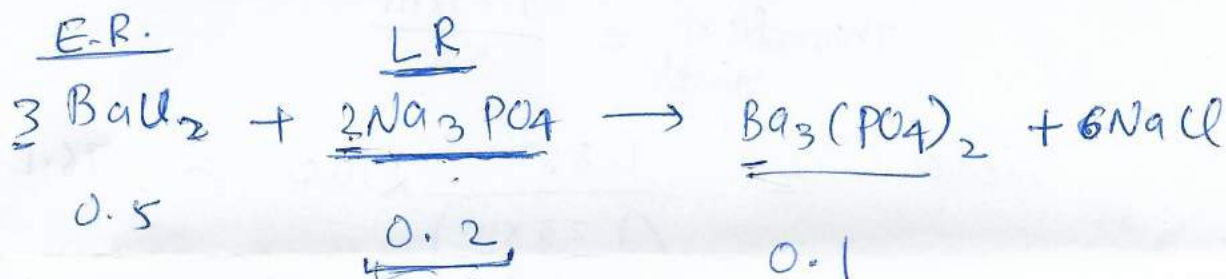 E.R. LR
3 BaCl₂ + 2Na₃PO₄ → Ba₃(PO₄)₂ + 6NaCl
0.5 0.2 0.1